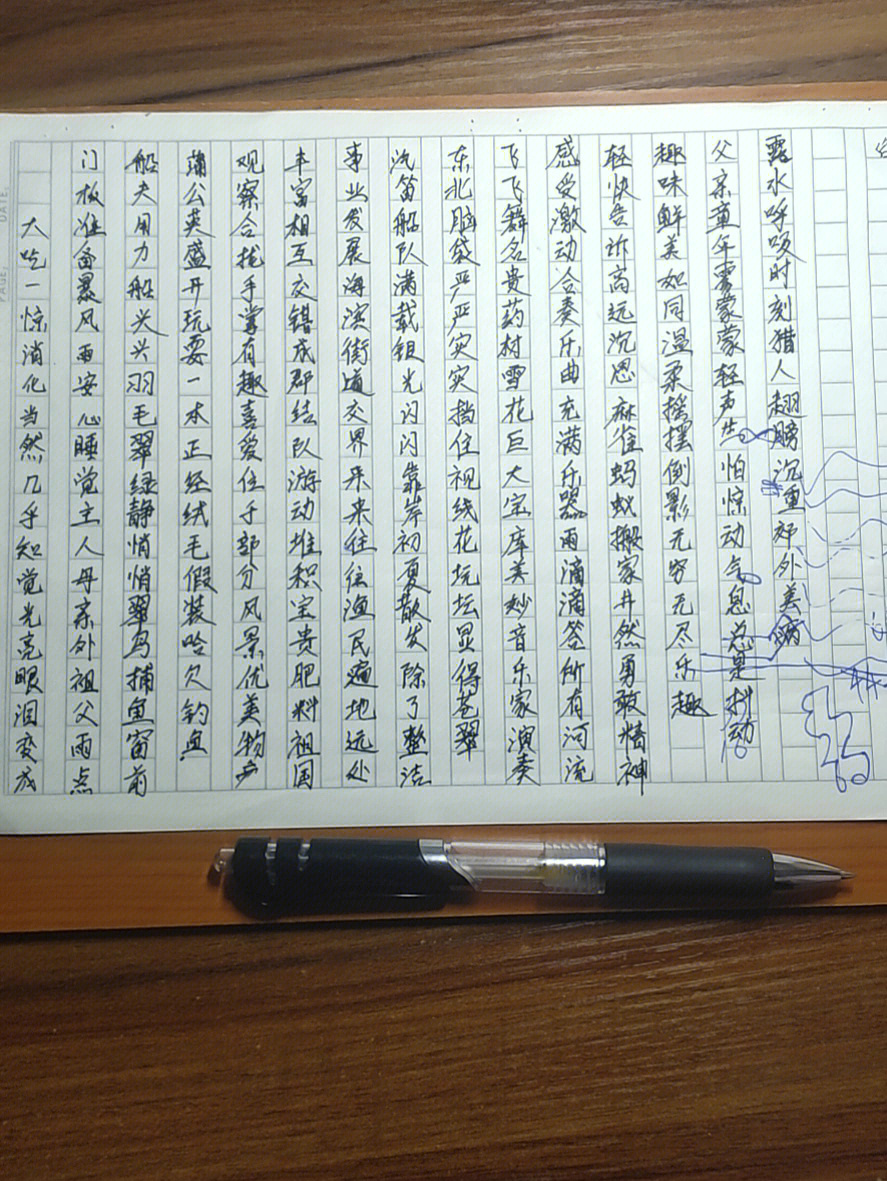 大吃一惊消化当然几乎知觉光亮眼泪变成
门板准备暴风雨安心睡觉主人母亲外祖父雨点
船夫用力船头兴羽毛翠绿静悄悄翠鸟捕鱼窗前
蒲公英盛开玩耍一本正经绒毛假装哈欠钓鱼
观察合拢手掌有趣喜爱任于部分风景优美物产
丰富相互交错成群结队游动堆积宝贵肥料祖国
事业发展海滨街道交界来来往往渔民遍地远处
汽笛船队满载银光闪闪靠岸初夏散发除了整洁
东北脑袋严严实实挡住视线花坛显得苍翠
飞飞舞名贵药材雪花巨大宝库美妙音乐家演奏
感受激动合奏乐曲充满乐器雨滴滴答所有河流
轻快告诉高远沉思麻雀蚂蚁搬家井然勇敢精神
趣味鲜美如同温柔摇摆倒影无穷无尽乐趣
父亲童年雾蒙蒙轻声怕惊动气息总是抖动
露水呼吸时刻猎人翅膀沉重郊外美